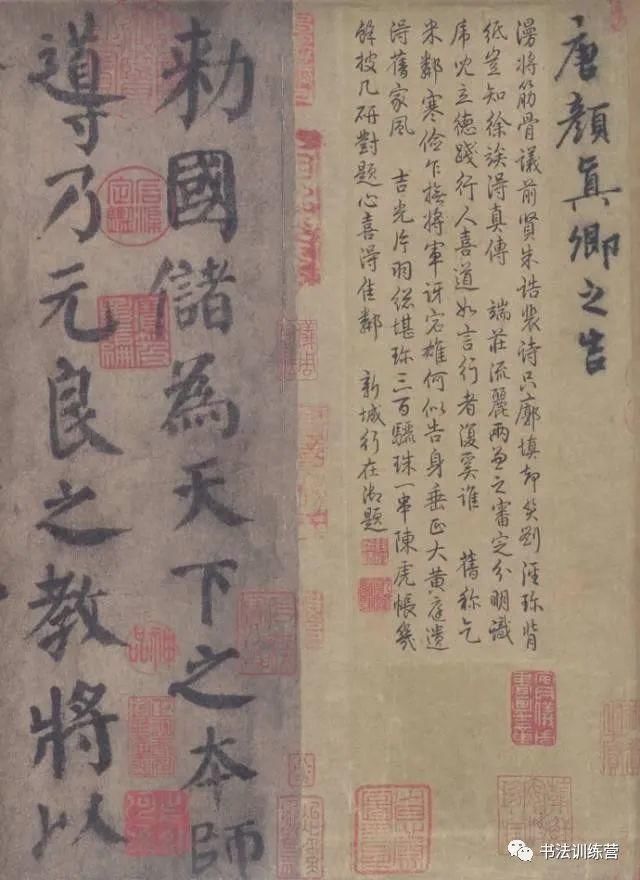 唐顏真卿之告
漫將筋骨議前賢朱誥裴诗只廓填却笑劉涇珎背
紙豈知徐得真傳 端莊流麗兩兼之審定分明識
立德踐行人喜道如言行者復奚誰 舊称乞
米鄰寒儉乍撫將軍訝宕雄何似告身垂正大黄庭遺
得舊家風 吉光片羽縂堪珎三百驪珠一串陳虎帳幾
餘披几研對題心喜得佳鄰 新城行在御題
勅國儲為天下之本師
導乃元良之教將以
神品
书法训练营